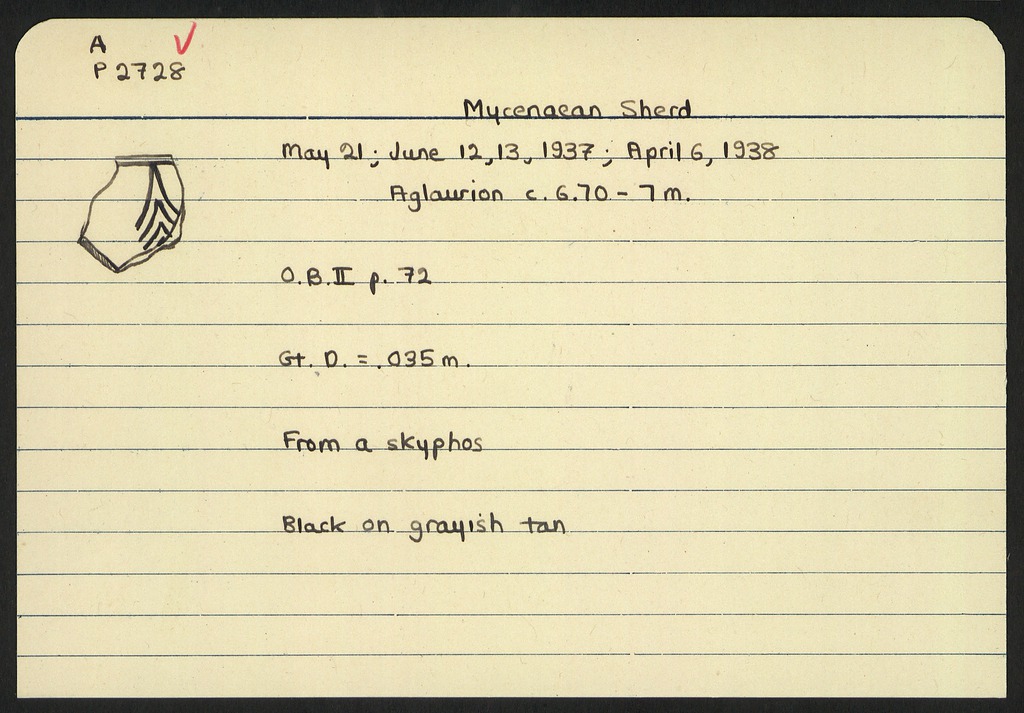 A
P 2728
Mycenaean Sherd
May 21; June 12, 13, 1937; April 6, 1938
Aglaurion c. 6.70 - 7 m.
O.B. II p. 72
Gt. D. = .035 m.
From a skyphos
Black on grayish tan